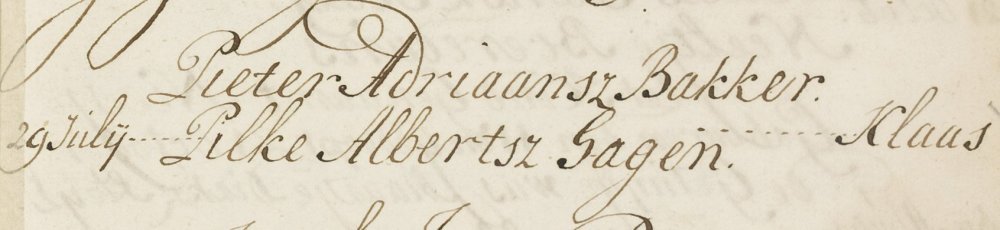 Pieter Adriaansz Bakker.
29 Julij Pilke Albertsz Gagen. Klaas